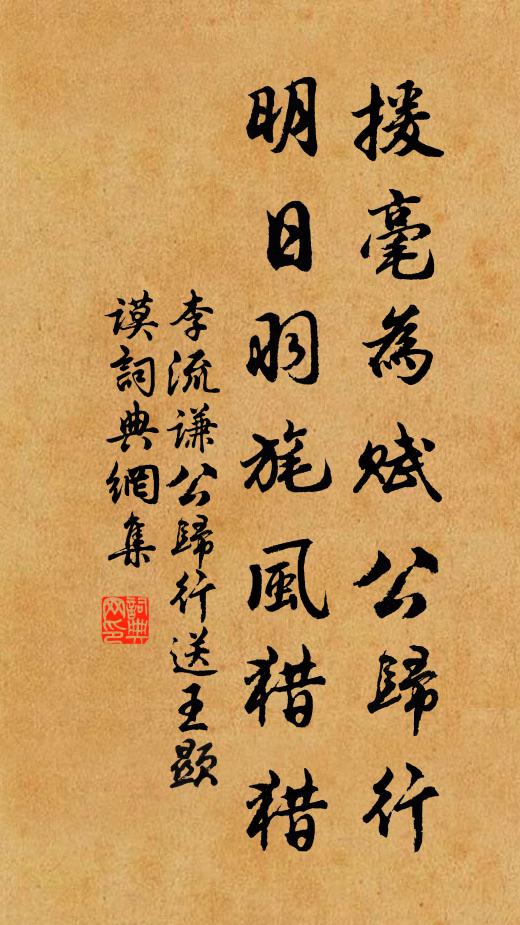 援毫為賦公歸行
明日羽旄風猎猎
李流谦公歸行送王顯
謨詞典網集
詞典网印